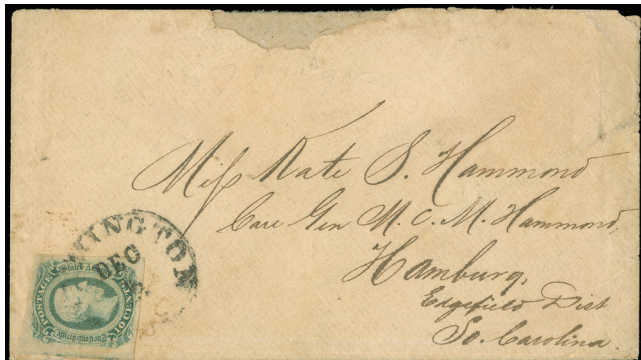 Miss Kate S. Hammond
Care Gen M. C. M. Hammond,
Hamburg,
Edgefield Dist
So. Carolina
INGTON
DEC
POSTAGE
TEN CENTS